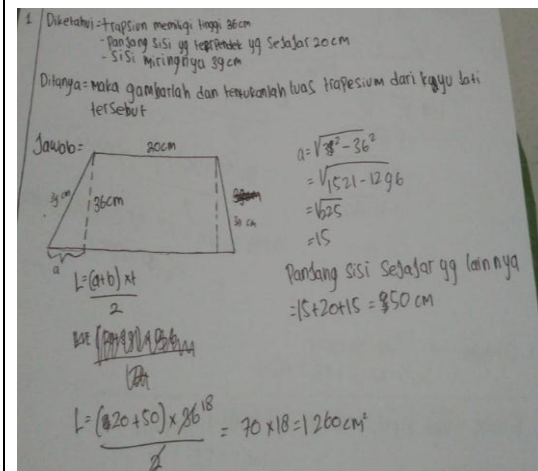 1 Diketahui = trapsium memiliki tinggi 36cm
- Panjang sisi yg terpendek yg sejajar 20cm
- Sisi miringnya 39cm
Ditanya = Maka gambarlah dan tentukanlah luas trapesium dari kayu jati
tersebut
Jawab =
20cm
39 cm
36cm
39 cm
a
a = √39² - 36²
= √1521 - 1296
= √225
= 15
Panjang sisi sejajar yg lainnya
= 15 + 20 + 15 = 50 cm
L = (a+b) x t
2
L = (20 + 50) x 36 18 = 70 x 18 = 1260cm²
2